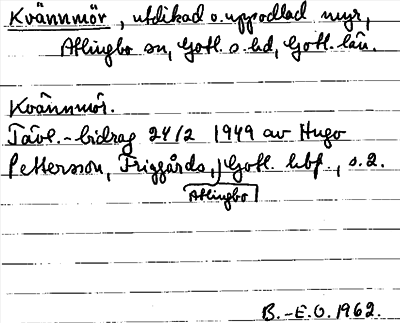 Kvännmör, utdikad o. uppodlad myr,
Atlingbo sn, Gotl. s. hd, Gotl. län.
Kvännmör.
Tävl.-bidrag 24/2 1949 av Hugo
Pettersson, Friggårds, Gotl. hbf., s. 2.
Atlingbo
B.-E.O. 1962.